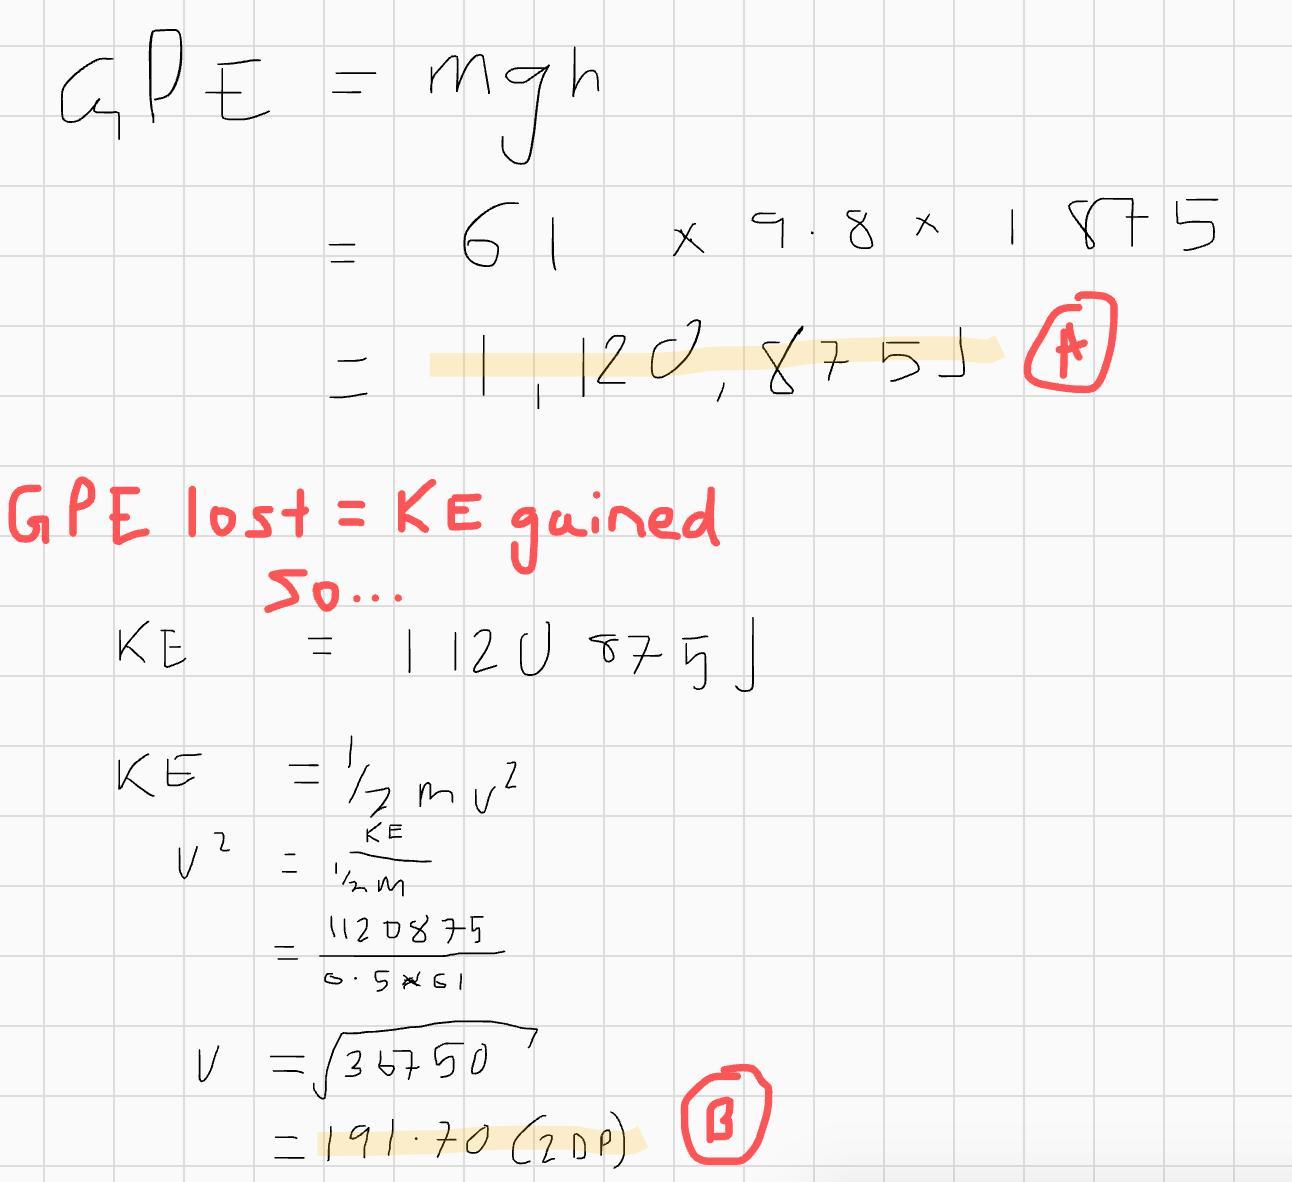 GPE = mgh
= 61 × 9.8 × 1875
= 1,120,875J A
GPE lost = KE gained
so...
KE = 1120875J
KE = 1/2 mv²
v² = KE / 1/2 m
= 1120875 / 0.5 × 61
v = √36750
= 191.70 (2DP) B